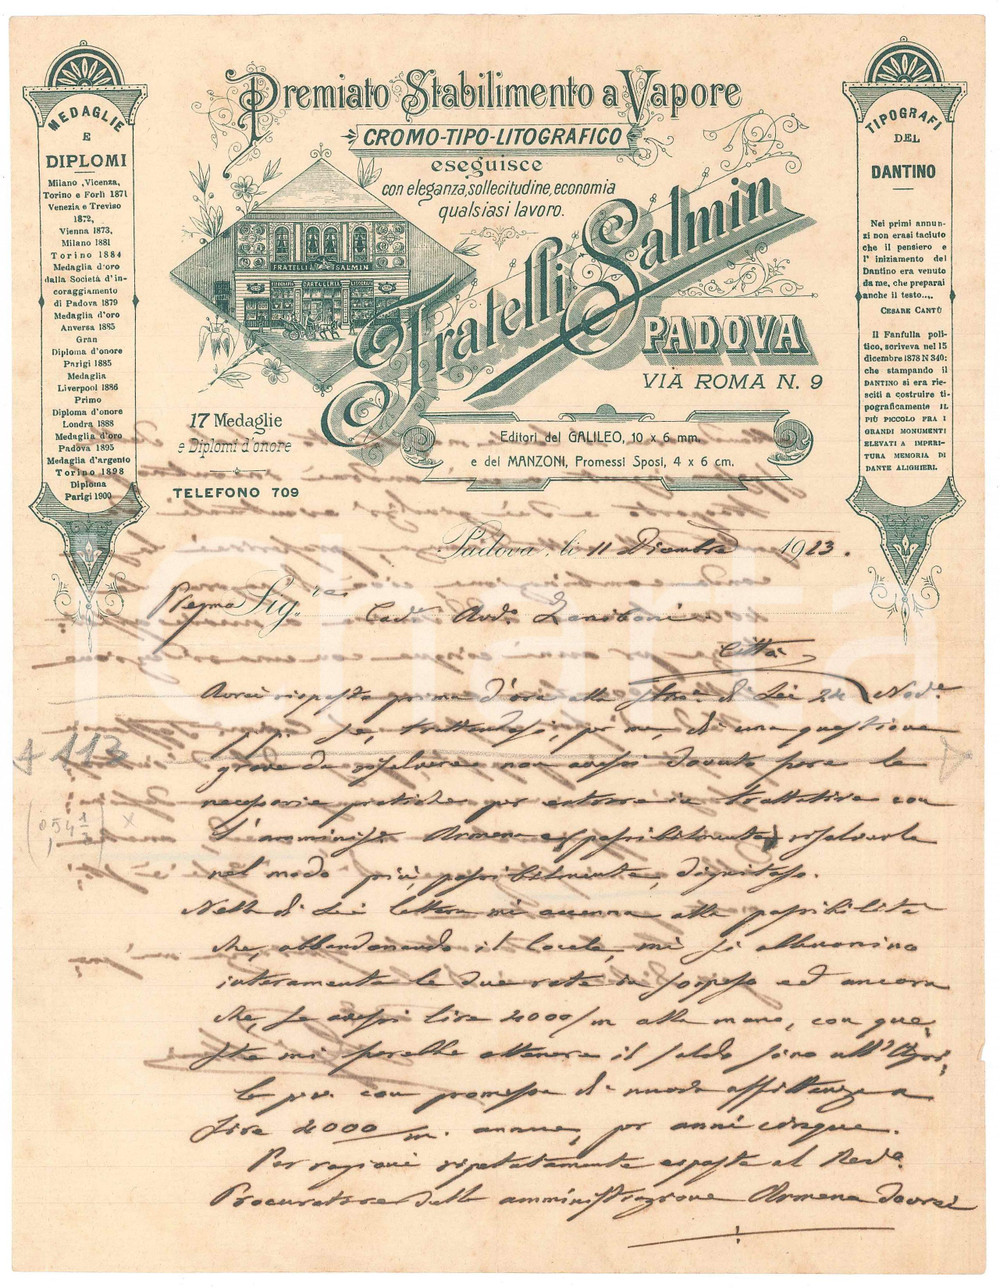 Premiato Stabilimento a Vapore
CROMO-TIPO-LITOGRAFICO
eseguisce
con eleganza, sollecitudine, economia
qualsiasi lavoro.
Fratelli Salmin
PADOVA
VIA ROMA N. 9
FRATELLI SALMIN
CARTOLERIA
17 Medaglie
e Diplomi d'onore
TELEFONO 709
Editori del GALILEO, 10 x 6 mm.
e del MANZONI, Promessi Sposi, 4 x 6 cm.
MEDAGLIE
E
DIPLOMI
Milano, Vicenza,
Torino e Forlì 1871
Venezia e Treviso
1872,
Vienna 1873,
Milano 1881
Torino 1884
Medaglia d'oro
dalla Società d'in-
coraggiamento
di Padova 1879
Medaglia d'oro
Anversa 1885
Gran
Diploma d'onore
Parigi 1885
Medaglia
Liverpool 1886
Primo
Diploma d'onore
Londra 1888
Medaglia d'oro
Padova 1895
Medaglia d'argento
Torino 1898
Diploma
Parigi 1900
TIPOGRAFI
DEL
DANTINO
Nei primi annun-
zi non erasi taciuto
che il pensiero e
l' iniziamento del
Dantino era venuto
da me, che preparai
anche il testo....
CESARE CANTÙ
Il Fanfulla poli-
tico, scriveva nel 15
dicembre 1878 N 340:
che stampando il
DANTINO si era rie-
sciti a costruire ti-
pograficamente IL
PIÙ PICCOLO FRA I
GRANDI MONUMENTI
ELEVATI A IMPERI-
TURA MEMORIA DI
DANTE ALIGHIERI.
Padova, li 11 Dicembre 1923.
Pregmo Sig.re
Avv. Zaniboni
Città
Avrei risposto prima d'ora alla di Lei 24 Nov.e
p.p. se, trattandosi, per me, di una questione
grave da risolvere non avessi dovuto fare le
necessarie pratiche per entrare in trattative con
l'amministr. Armena e possibilmente risolverla
nel modo più, possibilmente, dignitoso.
Nella di Lei lettera mi accenna alla possibilità
che, abbandonando il locale, mi si abbuonino
interamente le due rate in sospeso ed ancora
che, se avessi lire 4000 alla mano, con que-
sta mi farebbe ottenere il saldo fino all'Apri-
le p.v. con promessa di nuova affittanza a
Lire 4000 annue, per anni cinque.
Per ragioni ripetutamente esposte al Rev.o
Procuratore della amministrazione Armena dovrei
113
iCharta